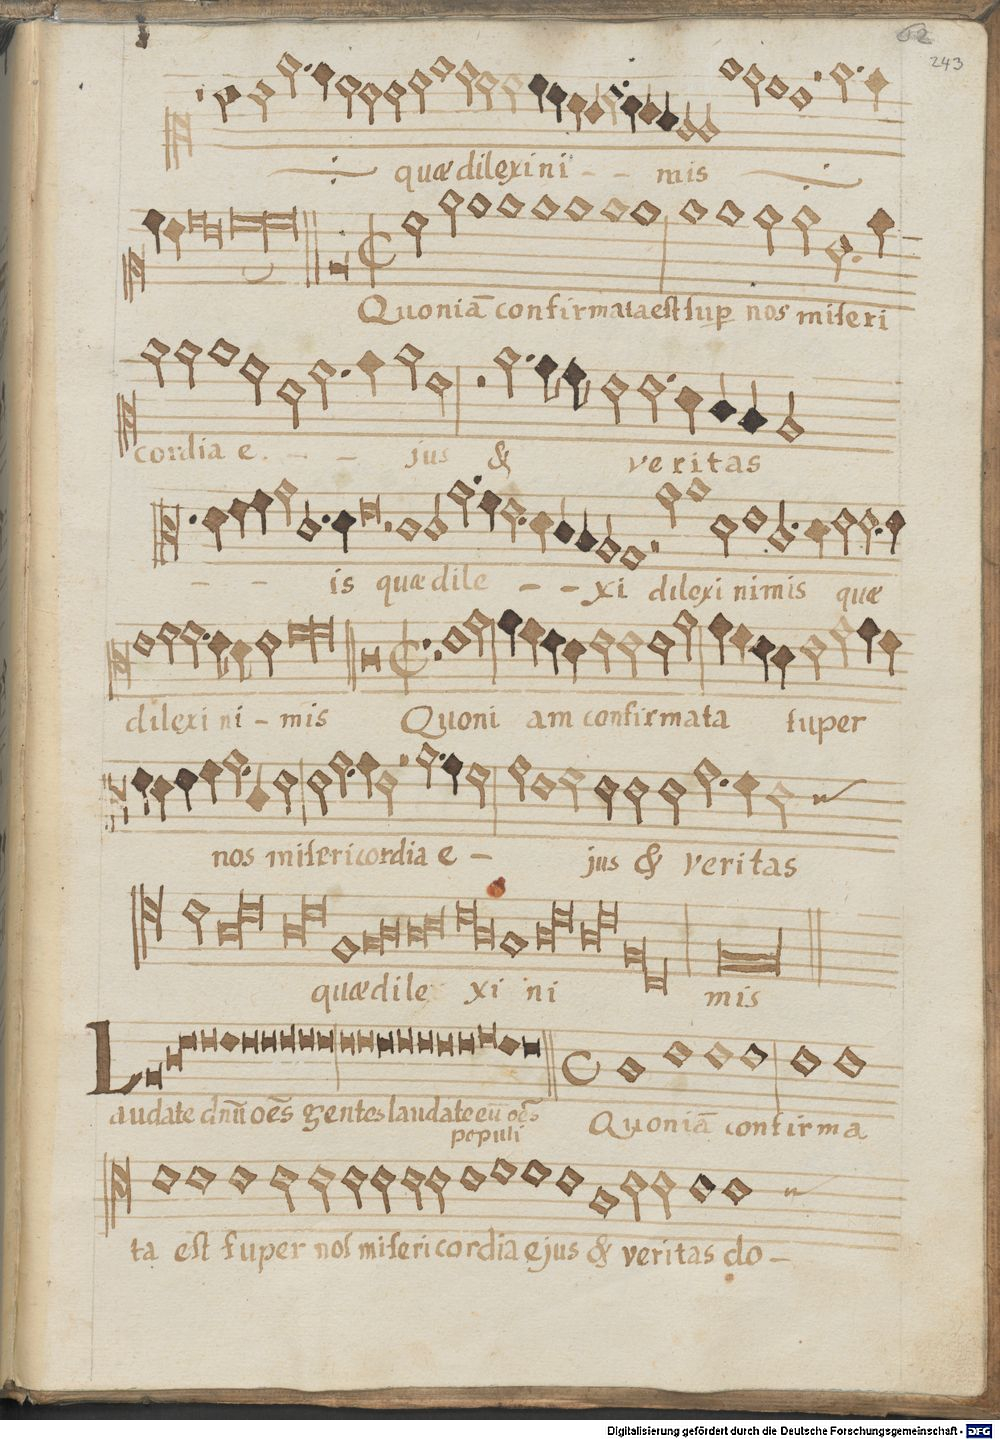 62
243
quæ dilexi ni - - mis
Quoniā confirmata est sup nos miseri
cordia e. - - jus & veritas
- - is quæ dile - - xi dilexi nimis quæ
dilexi ni - mis Quoni am confirmata super
nos misericordia e - jus & veritas
quæ dile xi ni mis
Laudate dnū oēs gentes laudate eū oēs
populi
Quoniā confirma
ta est super nos misericordia ejus & veritas do -
Digitalisierung gefördert durch die Deutsche Forschungsgemeinschaft - DFG